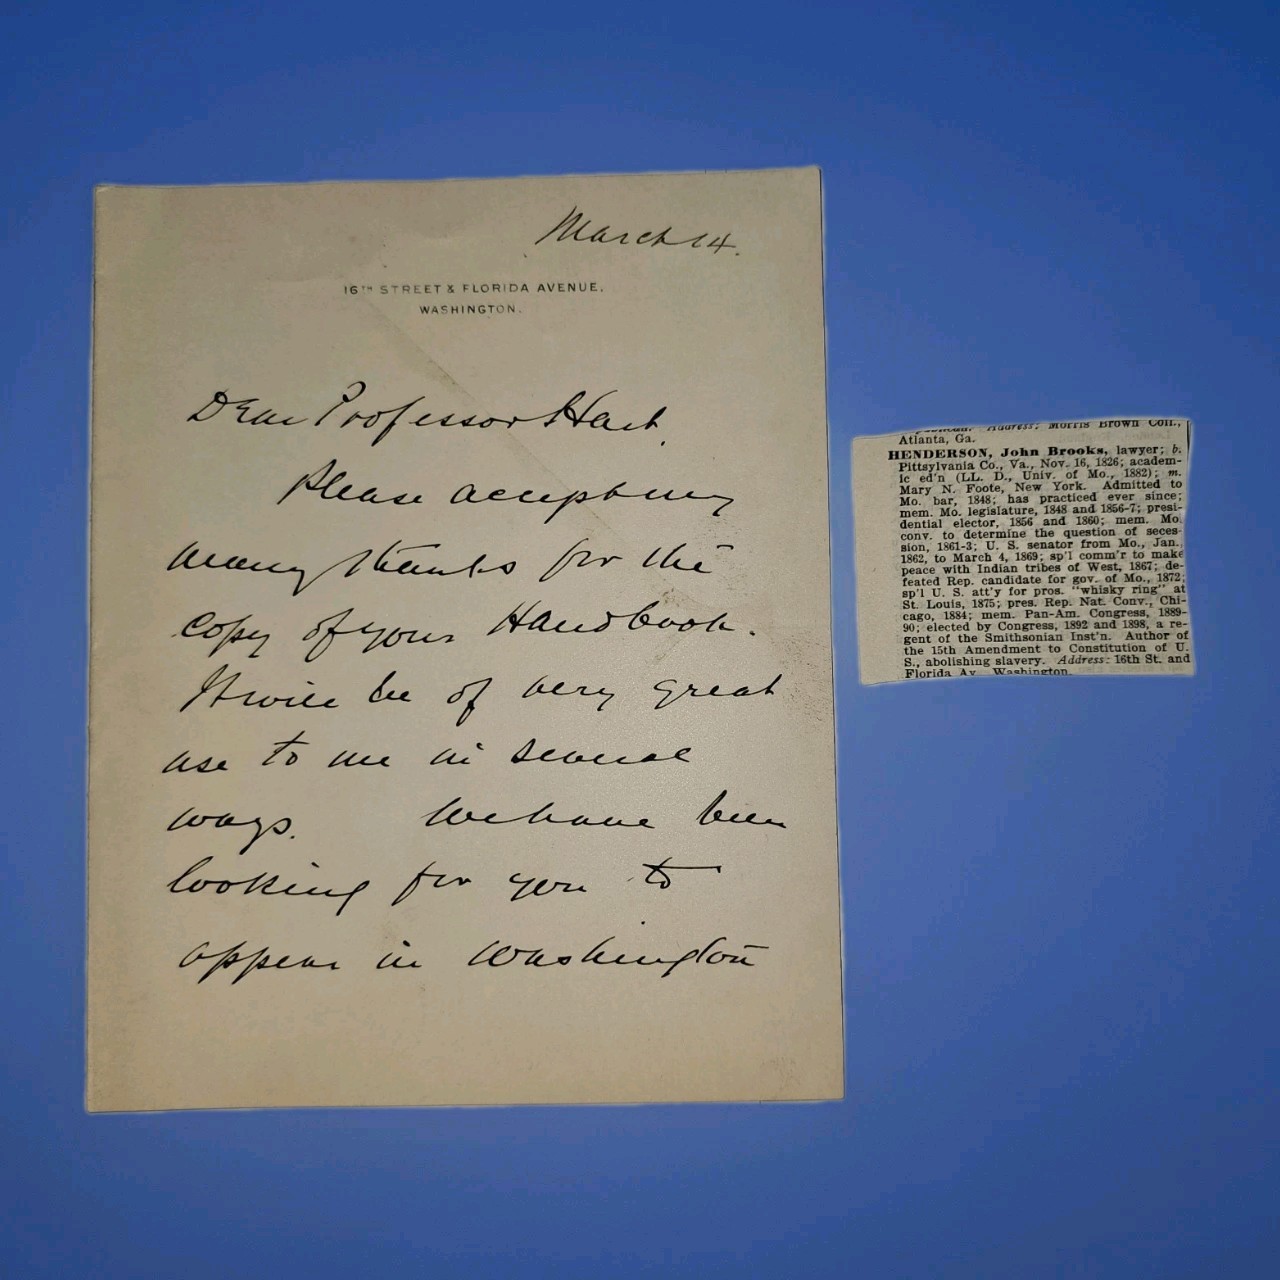 March 14.
16TH STREET & FLORIDA AVENUE,
WASHINGTON.
Dear Professor Hart.
Please accept my
many thanks for the
copy of your Handbook.
It will be of very great
use to me in several
ways. We have been
looking for you to
appear in Washington
Address: Morris Brown Coll.,
Atlanta, Ga.
HENDERSON, John Brooks, lawyer; b.
Pittsylvania Co., Va., Nov. 16, 1826; academ-
ic ed'n (LL. D., Univ. of Mo., 1882); m.
Mary N. Foote, New York. Admitted to
Mo. bar, 1848; has practiced ever since;
mem. Mo. legislature, 1848 and 1856-7; presi-
dential elector, 1856 and 1860; mem. Mo.
conv. to determine the question of seces-
sion, 1861-3; U. S. senator from Mo., Jan.,
1862, to March 4, 1869; sp'l comm'r to make
peace with Indian tribes of West, 1867; de-
feated Rep. candidate for gov. of Mo., 1872;
sp'l U. S. att'y for pros. "whisky ring" at
St. Louis, 1875; pres. Rep. Nat. Conv., Chi-
cago, 1884; mem. Pan-Am. Congress, 1889-
90; elected by Congress, 1892 and 1898, a re-
gent of the Smithsonian Inst'n. Author of
the 15th Amendment to Constitution of U.
S., abolishing slavery. Address: 16th St. and
Florida Av., Washington.